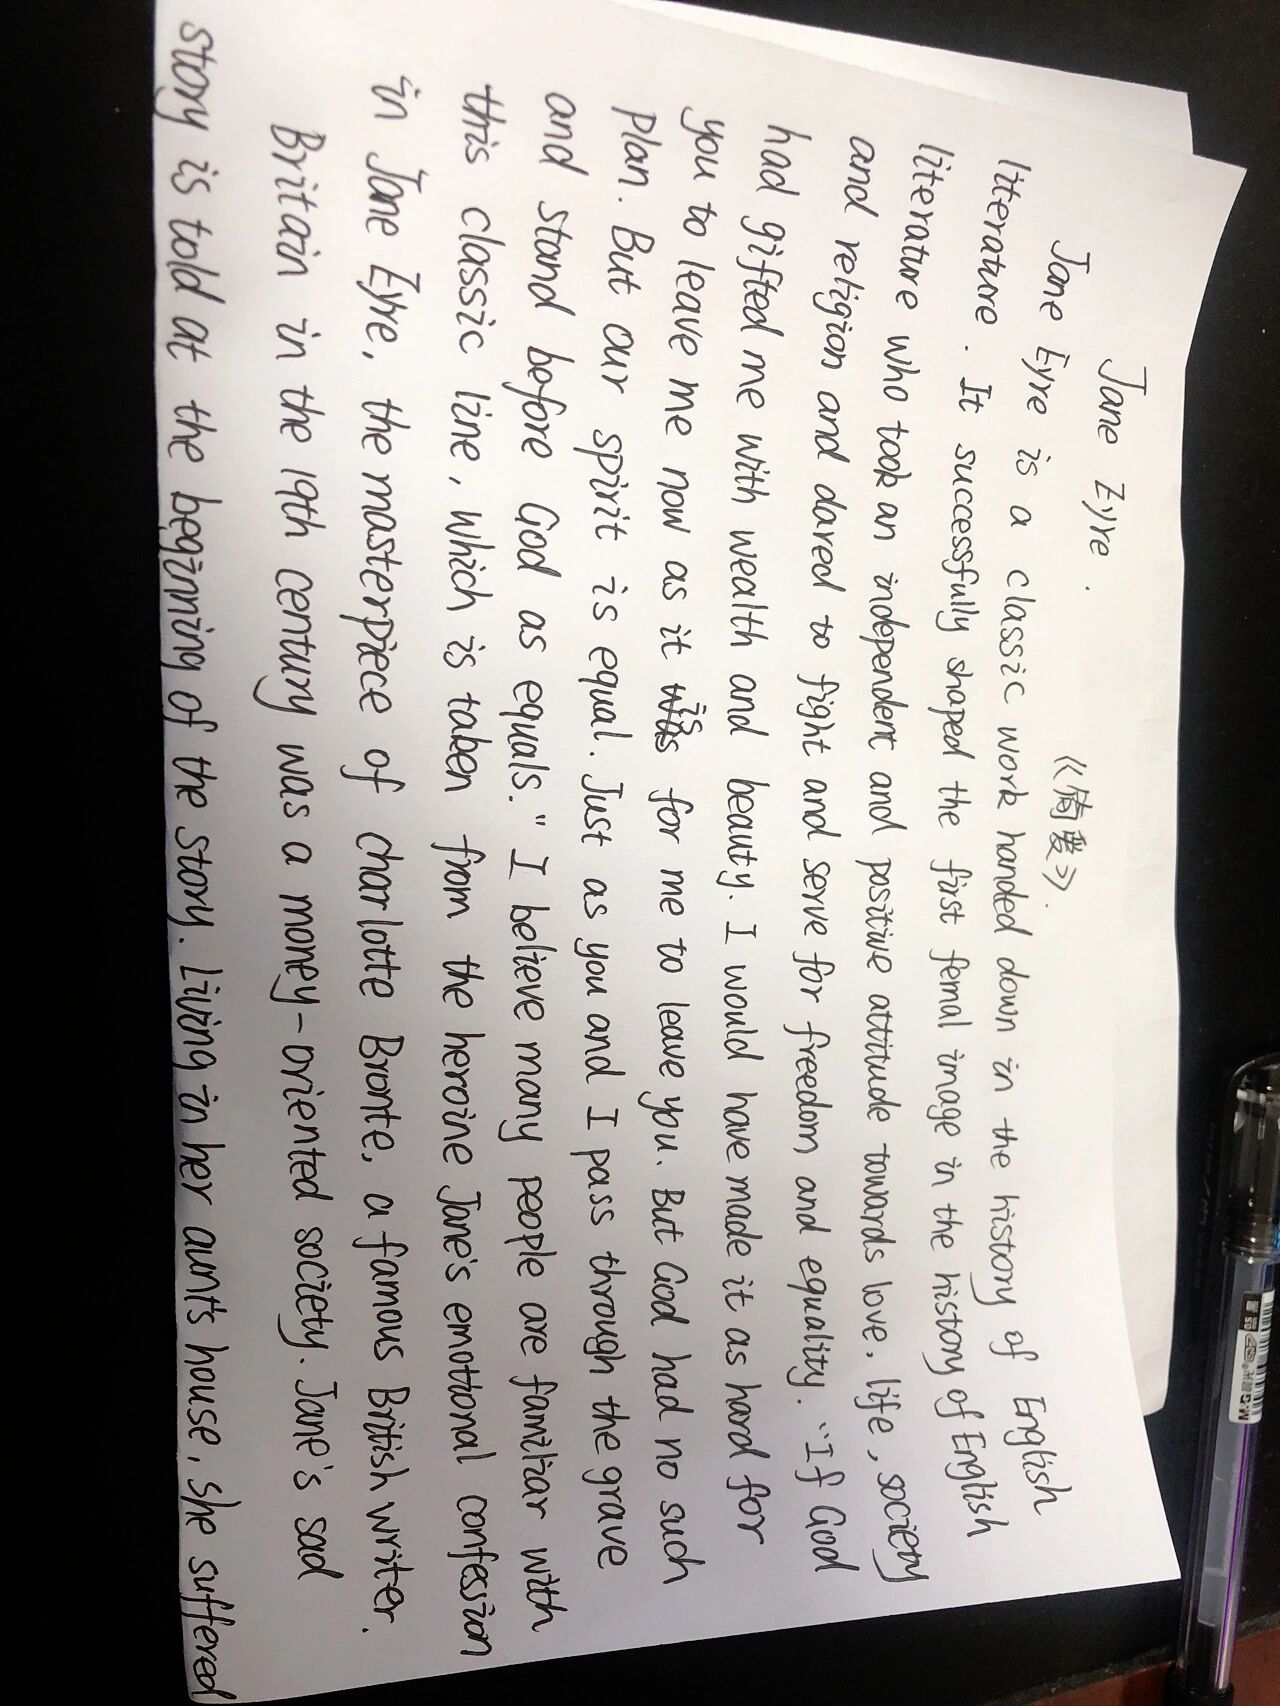 Jane Eyre.
《简爱》.
Jane Eyre is a classic work handed down in the history of English
literature. It successfully shaped the first femal image in the history of English
literature who took an independent and positive attitude towards love, life, society
and religion and dared to fight and serve for freedom and equality. "If God
had gifted me with wealth and beauty. I would have made it as hard for
you to leave me now as it is for me to leave you. But God had no such
plan. But our spirit is equal. Just as you and I pass through the grave
and stand before God as equals." I believe many people are familiar with
this classic line, which is taken from the heroine Jane's emotional confession
in Jane Eyre, the masterpiece of charlotte Bronte, a famous British writer.
Britain in the 19th century was a money-oriented society. Jane's sad
story is told at the beginning of the story. Living in her aunt's house, she suffered
M&G
0.5